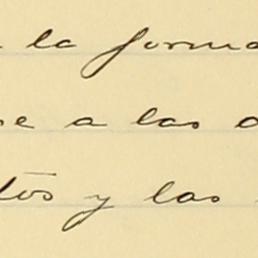 a la forma
se a las
tos y las